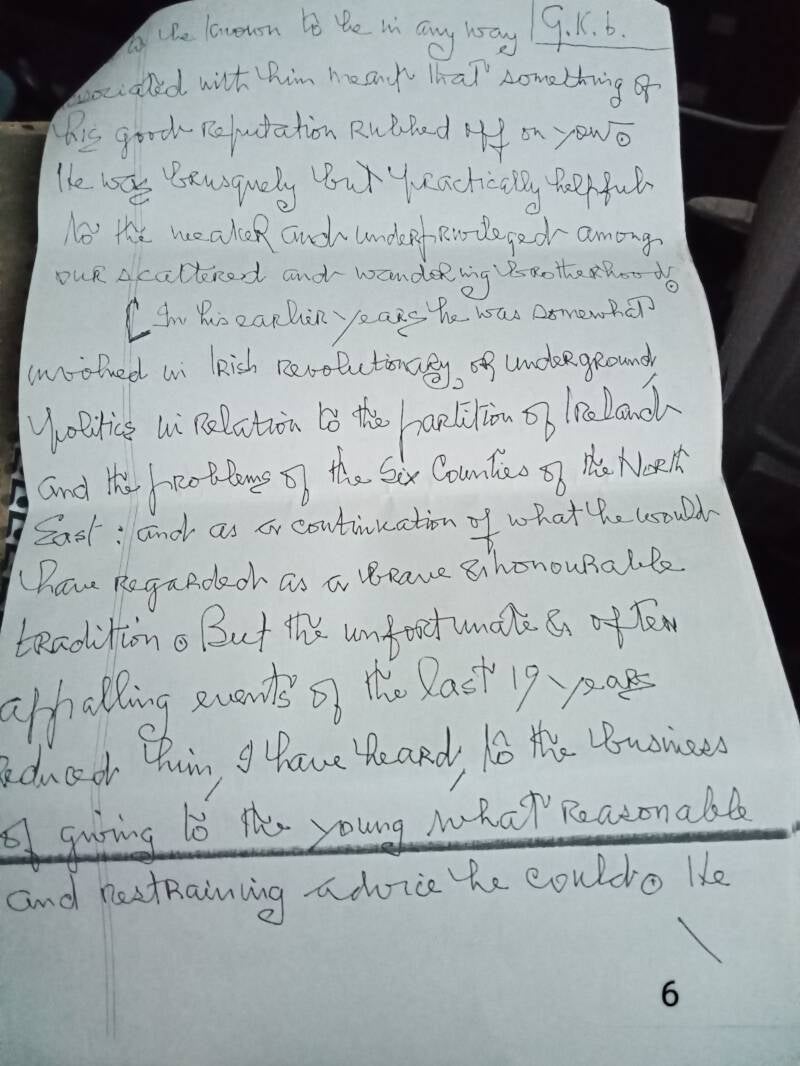 to be known to be in any way | G.K. 6.
associated with him meant that something of
his good reputation rubbed off on you.
He was brusquely but practically helpful
to the weaker and underprivileged among
our scattered and wandering brotherhood.
[ In his earlier years he was somewhat
involved in Irish revolutionary, or underground,
politics in relation to the partition of Ireland
and the problems of the Six Counties of the North
East: and as a continuation of what he would
have regarded as a brave & honourable
tradition. But the unfortunate & often
appalling events of the last 19 years
reduced him, I have heard, to the business
of giving to the young what reasonable
and restraining advice he could. He
6